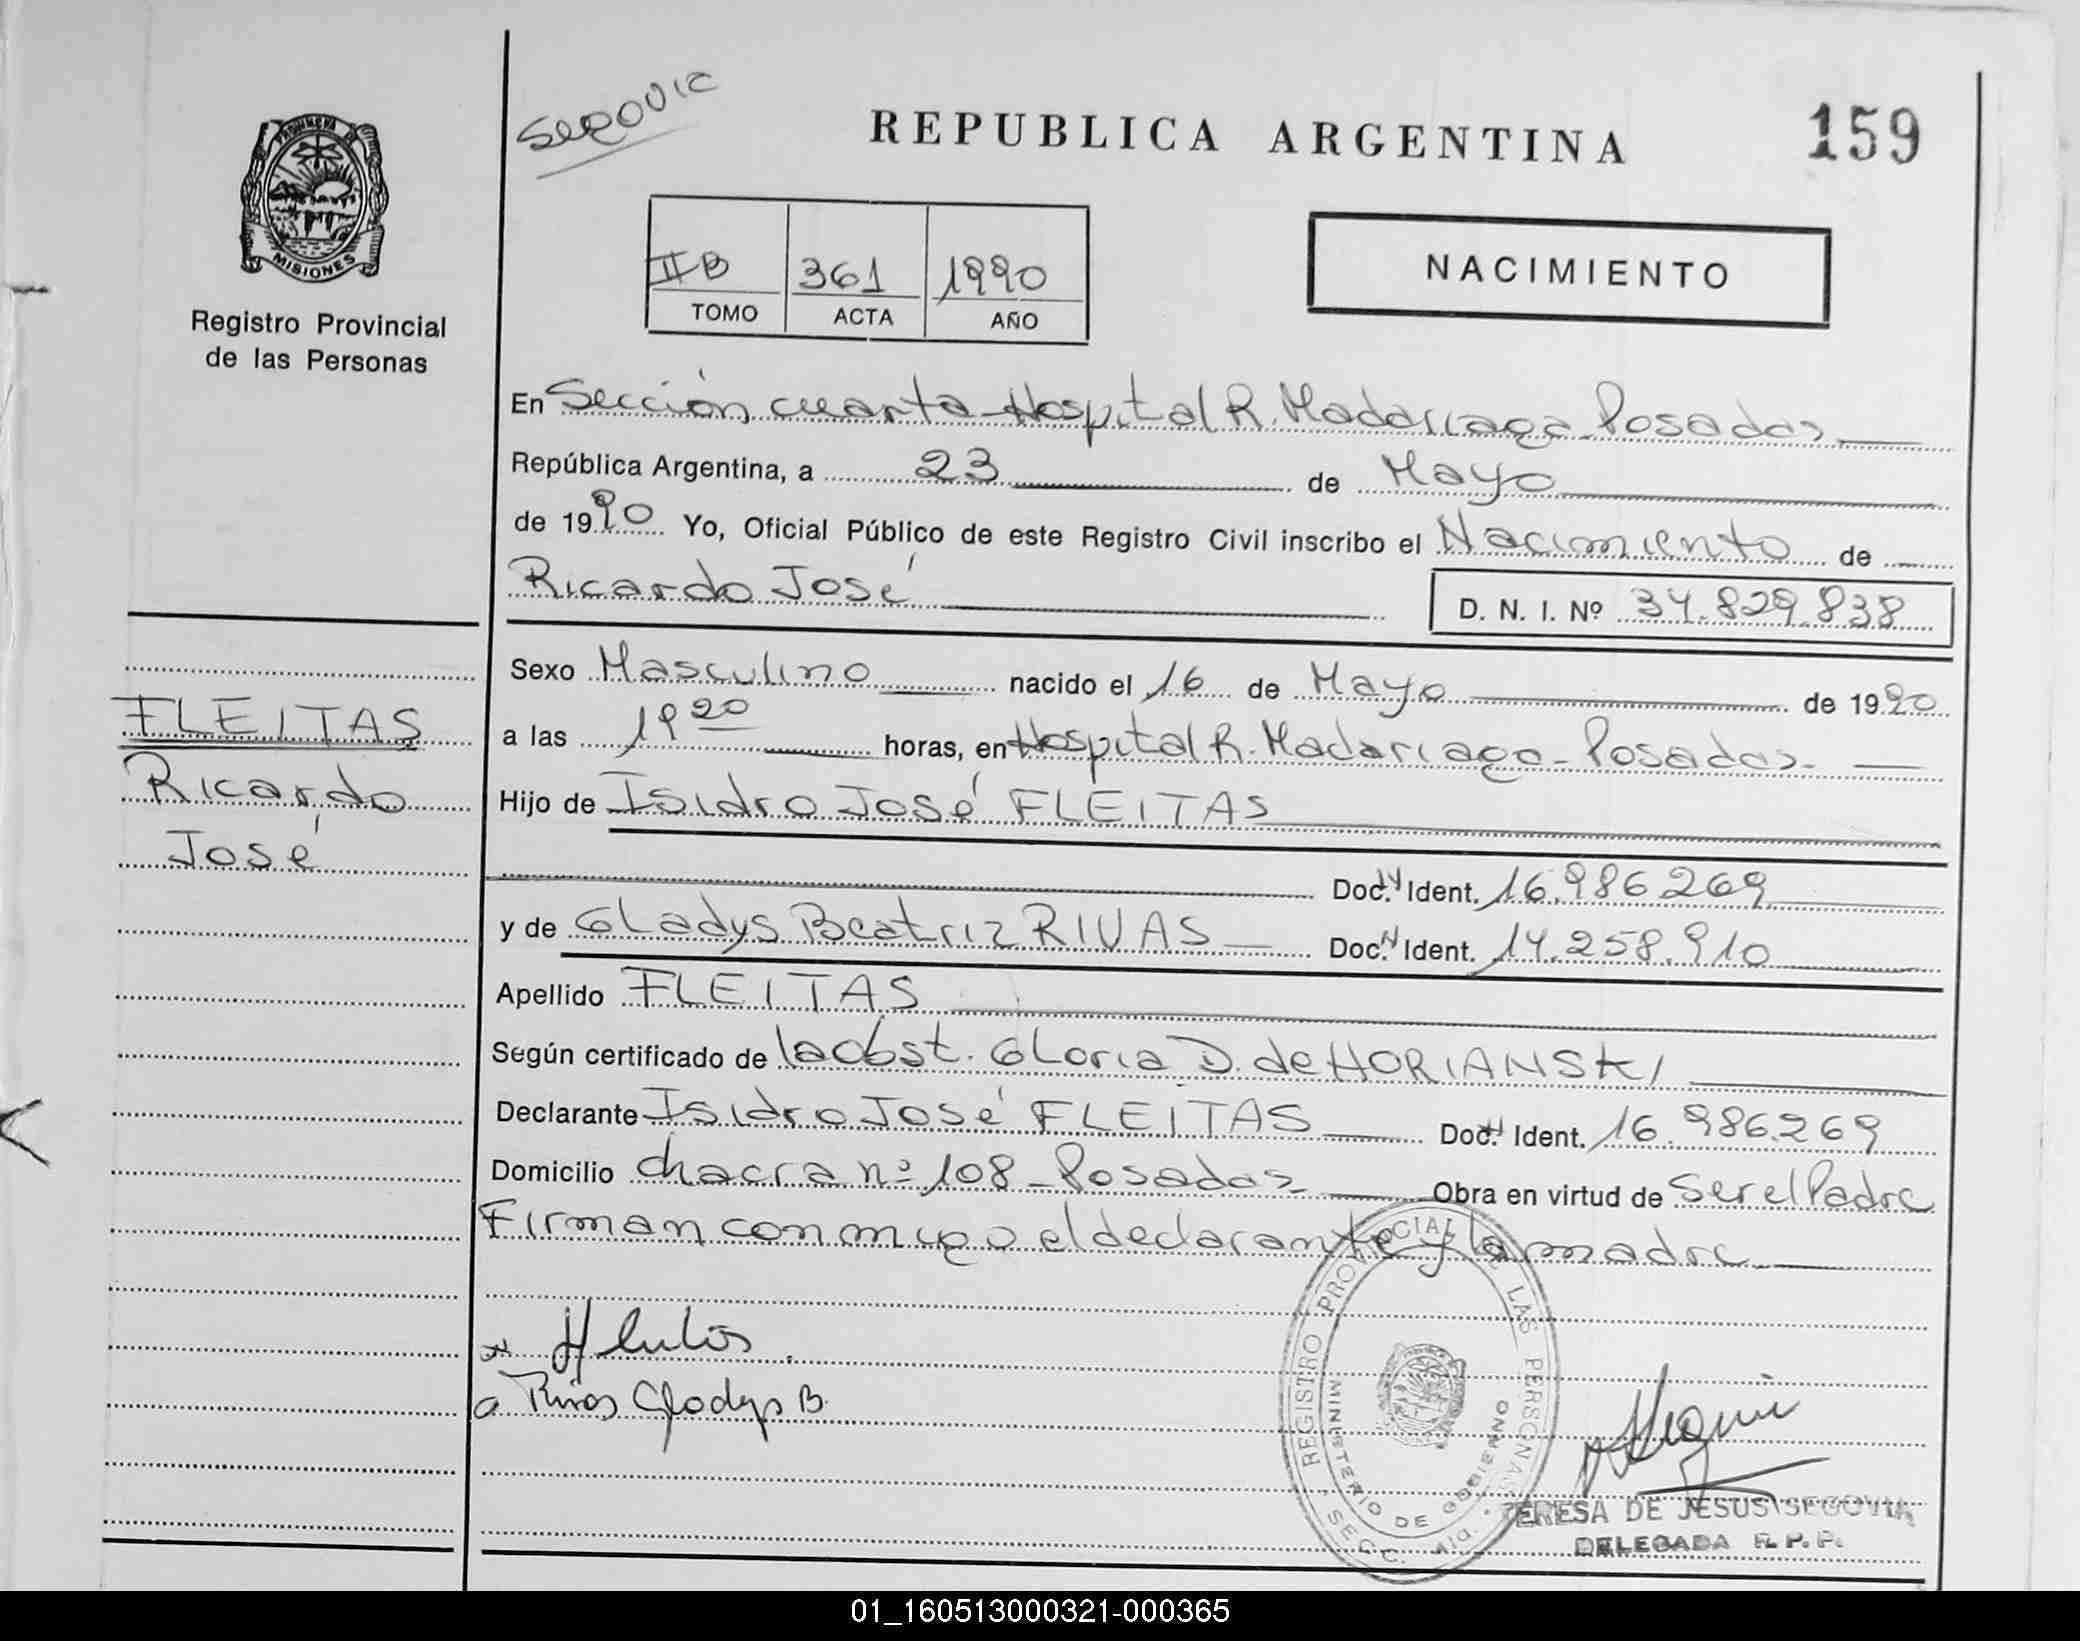 Segovia
REPUBLICA ARGENTINA
159
PROVINCIA DE
MISIONES
Registro Provincial
de las Personas
II B 361 1990
TOMO ACTA AÑO
NACIMIENTO
En Sección cuarta Hospital R. Madariaga Posadas
República Argentina, a 23 de Mayo
de 1990 Yo, Oficial Público de este Registro Civil inscribo el Nacimiento de
Ricardo José D. N. I. Nº 34.829.838
Sexo Masculino nacido el 16 de Mayo de 1990
a las 19 20 horas, en Hospital R. Madariaga - Posadas
Hijo de Isidro José FLEITAS
Doc. Ident. 16.986.269
y de Gladys Beatriz RIVAS Doc. Ident. 14.258.910
Apellido FLEITAS
Según certificado de la obst. Gloria D. de HORIANSKI
Declarante Isidro José FLEITAS Doc. Ident. 16.986.269
Domicilio chacra nº 108 - Posadas Obra en virtud de ser el Padre
Firman conmigo el declarante y la madre
FLEITAS
Ricardo
José
Rivas Gladys B.
REGISTRO PROVINCIAL DE LAS PERSONAS
MINISTERIO DE GOBIERNO
SECC. 4ta.
TERESA DE JESUS SEGOVIA
DELEGADA R. P. P.
01_160513000321-000365